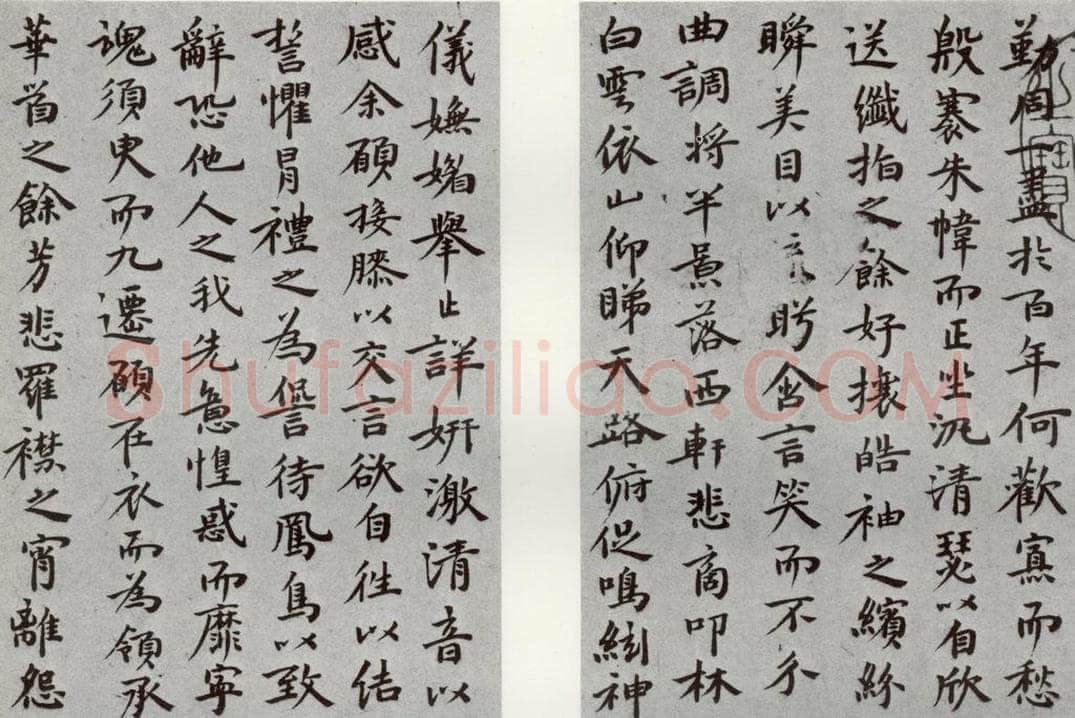 勤同一盡於百年何歡寡而愁
殷褰朱幃而正坐汎清瑟以自欣
送纖指之餘好攘皓袖之繽紛
瞬美目以眄含言笑而不分
曲調將半景落西軒悲商叩林
白雲依山仰睇天路俯促鳴絃神
儀嫵媚舉止詳妍激清音以
感余願接膝以交言欲自往以結
誓懼冒禮之為愆待鳳鳥以致
辭恐他人之我先意惶惑而靡寧
魂須臾而九遷願在衣而為領承
華首之餘芳悲羅襟之宵離怨
Shufaziliao.COM